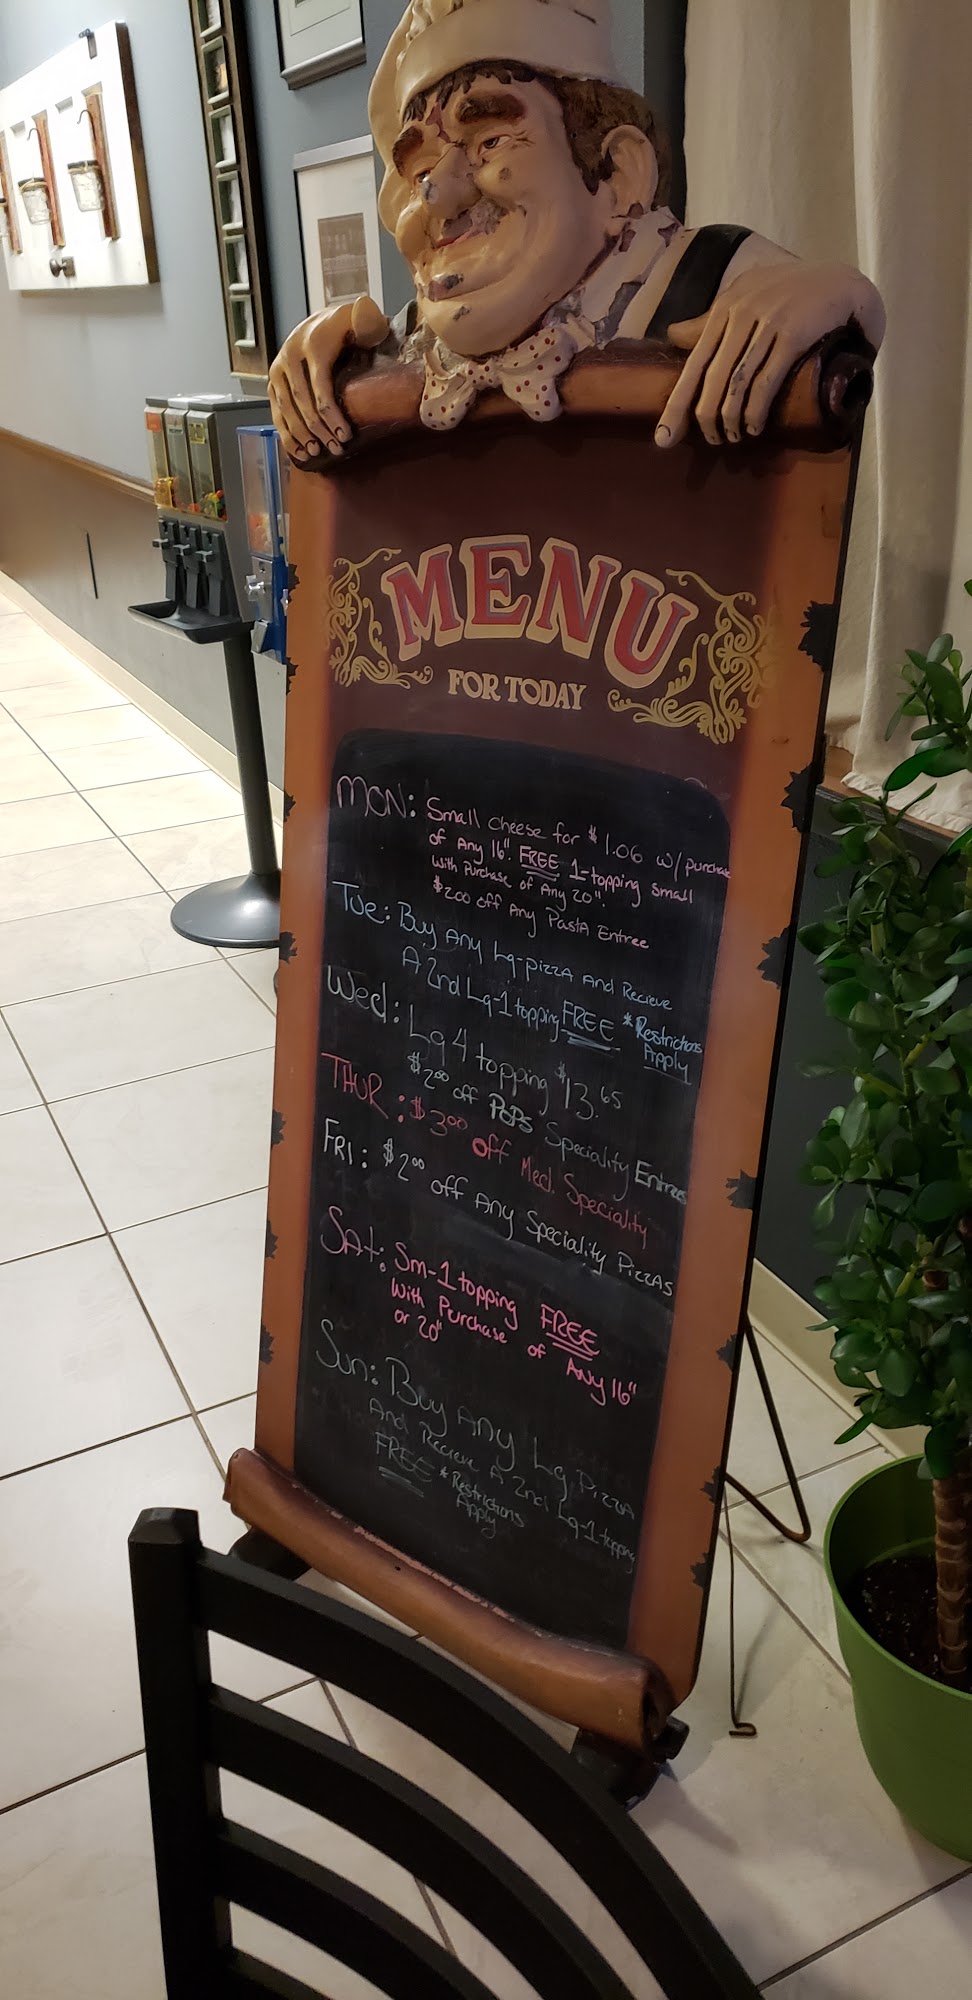 MENU
FOR TODAY
MON: Small cheese for $1.06 w/ purchase
of Any 16". FREE 1-topping small
with Purchase of Any 20".
$2.00 off Any PastA Entree
Tue: Buy Any Lg-pizzA And Recieve
A 2nd Lg-1 topping FREE *Restrictions
Apply
Wed: Lg 4 topping $13.65
$2.00 off POPS Speciality Entrees
THUR: $3.00 off Med. Speciality
FRI: $2.00 off Any Speciality PizzAs
SAt: Sm-1 topping FREE
With Purchase of ANy 16"
or 20"
Sun: Buy Any Lg. PizzA
And Recieve A 2nd Lg-1 topping
FREE *Restrictions
Apply